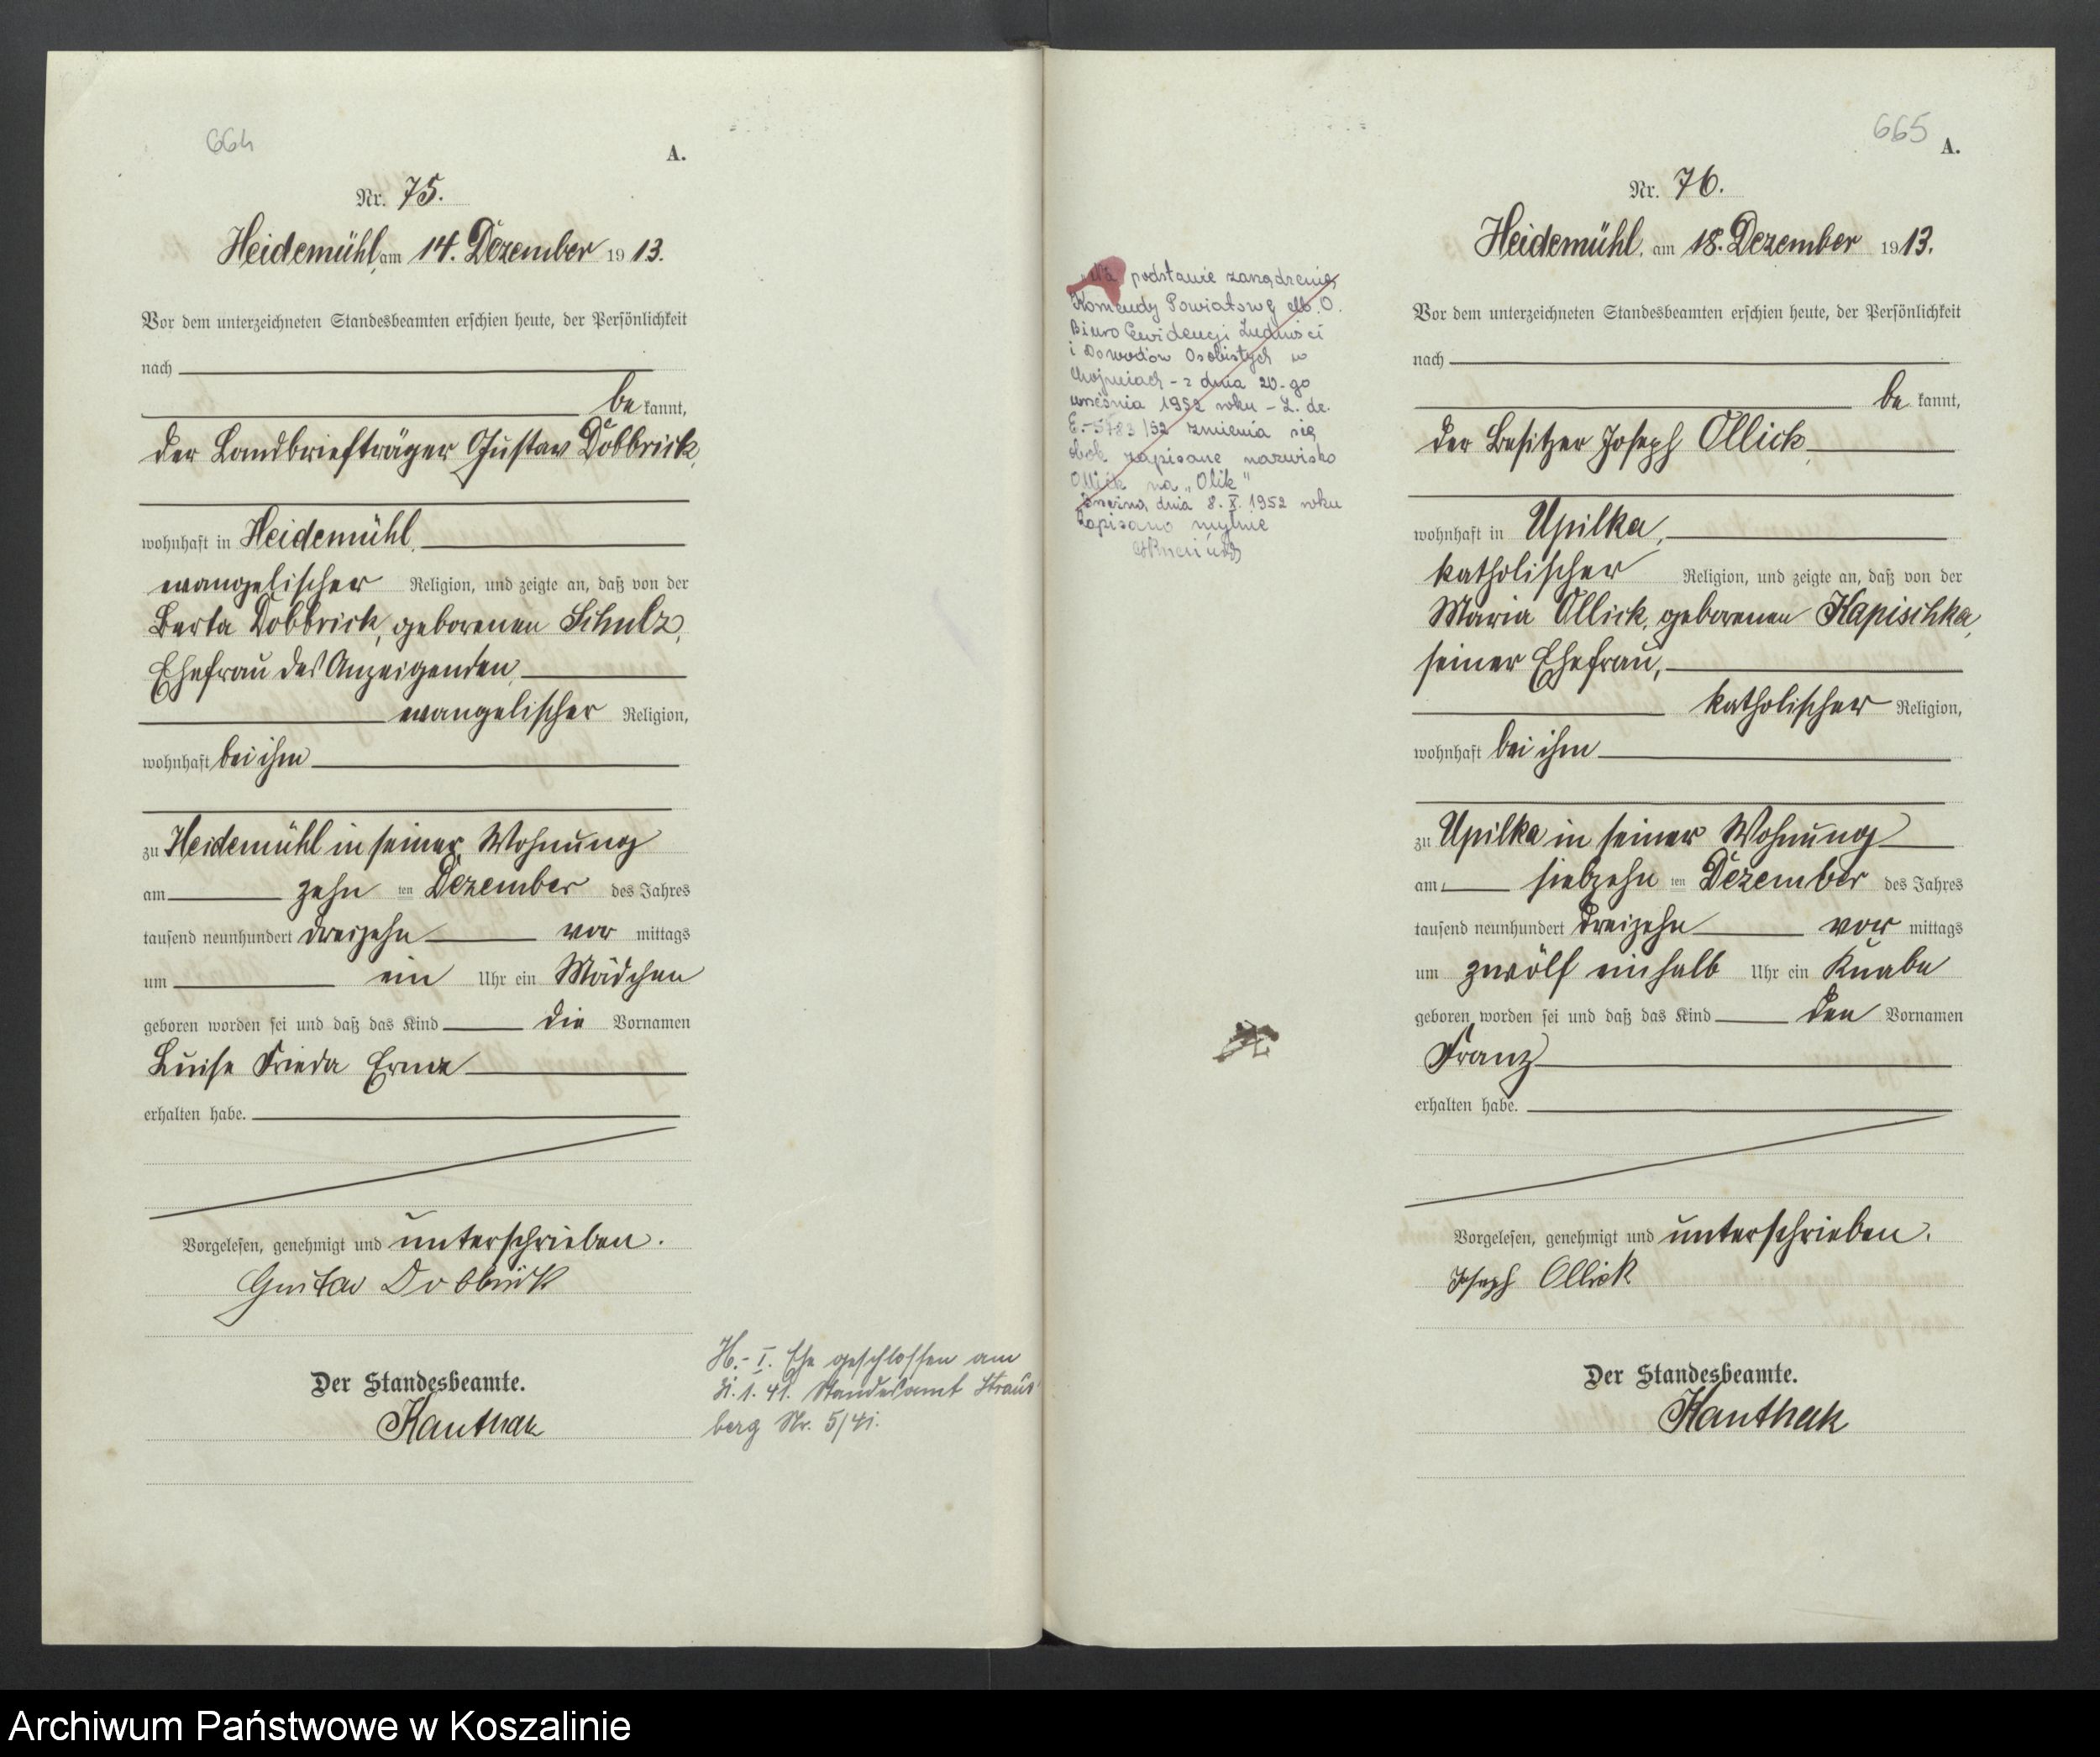 664
A.
Nr. 75.
Heidemühl, am 14. Dezember 1913.
Vor dem unterzeichneten Standesbeamten erschien heute, der Persönlichkeit
nach
be kannt,
der Landbriefträger Gustav Dobbrick,
wohnhaft in Heidemühl,
evangelischer Religion, und zeigte an, daß von der
Berta Dobbrick, geborenen Schulz,
Ehefrau des Anzeigenden,
evangelischer Religion,
wohnhaft bei ihm
zu Heidemühl in seiner Wohnung
am zehn ten Dezember des Jahres
tausend neunhundert dreizehn vor mittags
um ein Uhr ein Mädchen
geboren worden sei und daß das Kind die Vornamen
Luise Frieda Erna
erhalten habe.
Vorgelesen, genehmigt und unterschrieben.
Gustav Dobbrick
Der Standesbeamte.
Kanthak
H.- I. Ehe geschlossen am
1. 41. Standesamt Straus
berg Nr. 5/41.
665
A.
Nr. 76.
Heidemühl, am 18. Dezember 1913.
Vor dem unterzeichneten Standesbeamten erschien heute, der Persönlichkeit
nach
be kannt,
der Besitzer Joseph Ollick,
wohnhaft in Upilka,
katholischer Religion, und zeigte an, daß von der
Maria Ollick, geborenen Kapischka,
seiner Ehefrau,
katholischer Religion,
wohnhaft bei ihm
zu Upilka in seiner Wohnung
am siebzehn ten Dezember des Jahres
tausend neunhundert dreizehn vor mittags
um zwölf einhalb Uhr ein Knabe
geboren worden sei und daß das Kind den Vornamen
Franz
erhalten habe.
Vorgelesen, genehmigt und unterschrieben.
Joseph Ollick
Der Standesbeamte.
Kanthak
Na podstawie zarządzenia
Komendy Powiatowej M.O.
Biuro Ewidencji Ludności
i Dowodów Osobistych w
Chojnicach - z dnia 20-go
września 1952 roku - L. dz.
E.-5783/52 zmienia się
obok zapisane nazwisko
Ollick na „Olik"
dnia 8. X. 1952 roku
Zapisano mylnie
Archiwum Państwowe w Koszalinie